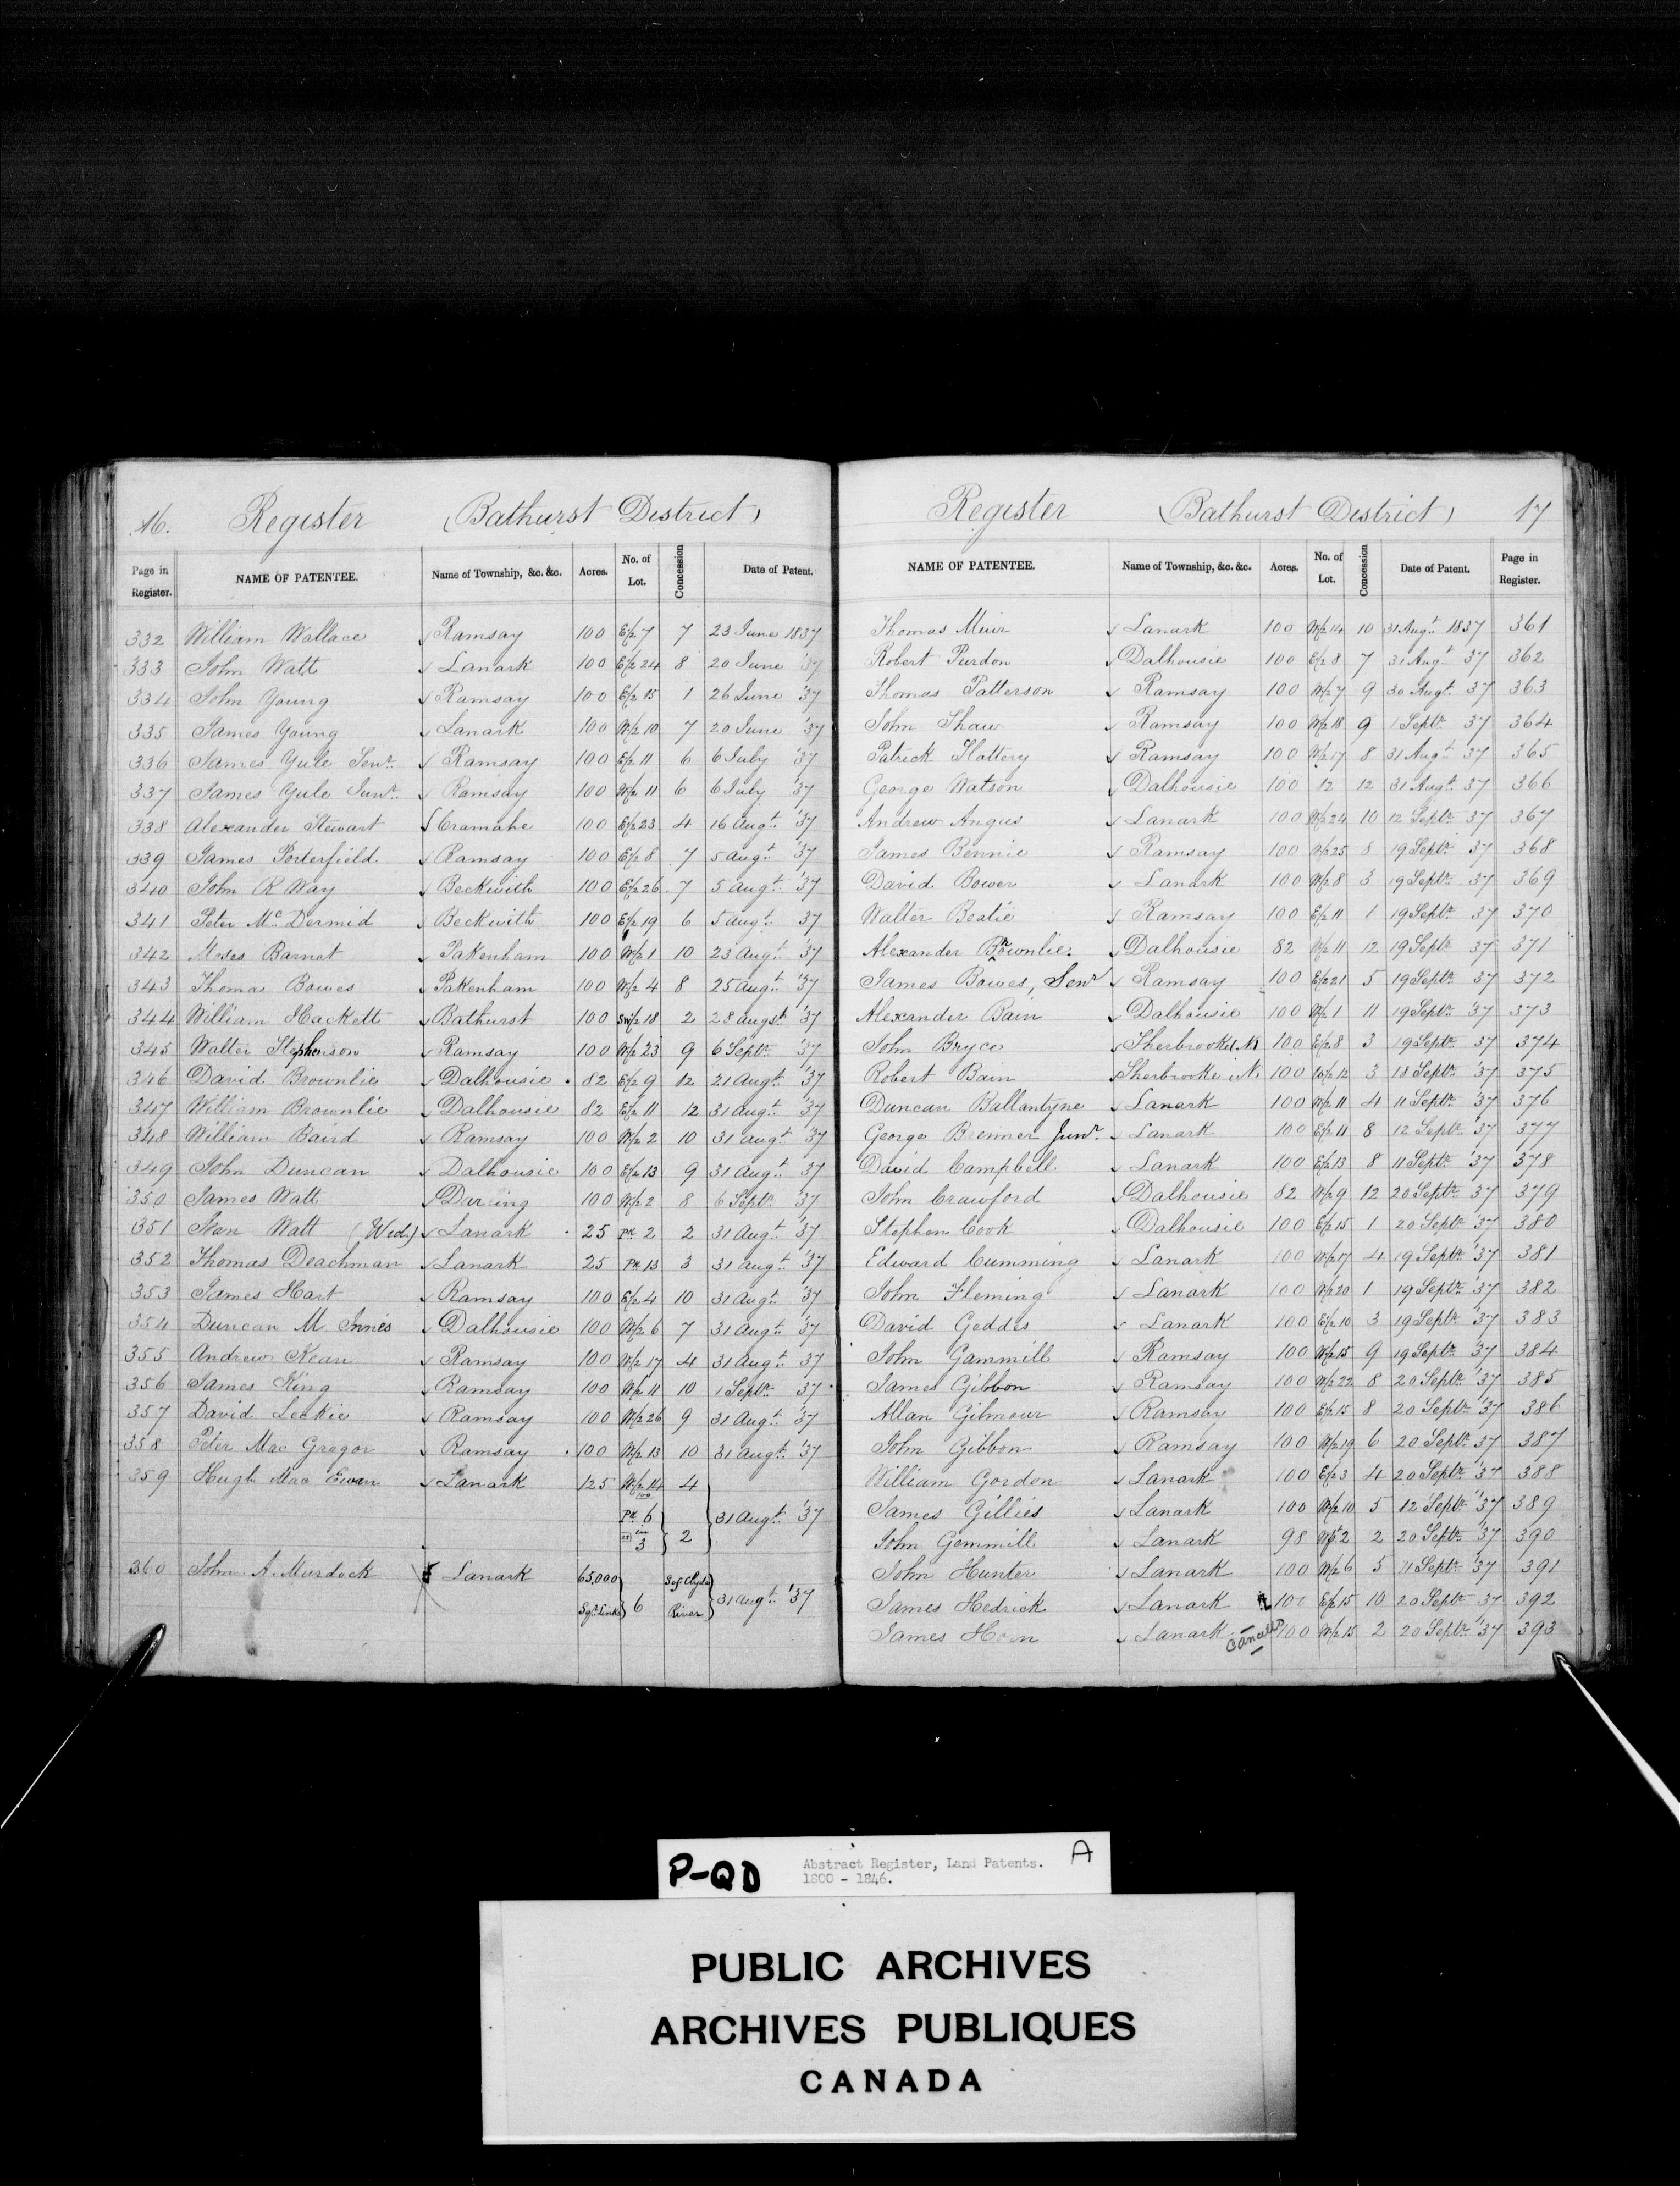 16. Register (Bathurst District)
Page in Register. NAME OF PATENTEE. Name of Township, &c. &c. Acres. No. of Lot. Concession Date of Patent.
332 William Wallace Ramsay 100 E/2 7 7 23 June 1837
333 John Watt Lanark 100 E/2 24 8 20 June '37
334 John Young Ramsay 100 E/2 15 1 26 June '37
335 James Young Lanark 100 W/2 10 7 20 June '37
336 James Yule Senr. Ramsay 100 E/2 11 6 6 July '37
337 James Yule Junr. Ramsay 100 W/2 11 6 6 July '37
338 Alexander Stewart Cramahe 100 E/2 23 4 16 Augt. '37
339 James Porterfield Ramsay 100 E/2 8 7 5 Augt. '37
340 John R Way Beckwith 100 E/2 26 7 5 Augt. '37
341 Peter Mc Dermid Beckwith 100 E/2 19 6 5 Augt. 37
342 Moses Barnet Pakenham 100 W/2 1 10 23 Augt. '37
343 Thomas Bowes Pakenham 100 W/2 4 8 25 Augt. '37
344 William Hackett Bathurst 100 SW/2 18 2 28 Augst. '37
345 Walter Stephenson Ramsay 100 W/2 23 9 6 Septr. '37
346 David Brownlie Dalhousie 82 E/2 9 12 21 Augt. '37
347 William Brownlie Dalhousie 82 E/2 11 12 31 Augt. '37
348 William Baird Ramsay 100 W/2 2 10 31 Augt. '37
349 John Duncan Dalhousie 100 E/2 13 9 31 Augt. 37
350 James Watt Darling 100 W/2 2 8 6 Septr. '37
351 Watt (Wid.) Lanark 25 Pt. 2 2 31 Augt. '37
352 Thomas Deachman Lanark 25 Pt. 13 3 31 Augt. '37
353 James Hart Ramsay 100 E/2 4 10 31 Augt. '37
354 Duncan Mc Innes Dalhousie 100 W/2 6 7 31 Augt. '37
355 Andrew Kean Ramsay 100 W/2 17 4 31 Augt. 37
356 James King Ramsay 100 W/2 11 10 1 Septr. 37
357 David Leckie Ramsay 100 W/2 26 9 31 Augt. '37
358 Peter Mac Gregor Ramsay 100 W/2 13 10 31 Augt. '37
359 Hugh Mac Ewen Lanark 125 W/2 14 4
100
Pt. 6 31 Augt. '37
25 in 3 2
360 John A. Murdock Lanark 65,000 S. of Clyde
Sqr. Links 6 River 31 Augt. '37
Register (Bathurst District) 17
NAME OF PATENTEE. Name of Township, &c. &c. Acres. No. of Lot. Concession Date of Patent. Page in Register.
Thomas Muir Lanark 100 W/2 14 10 31 Augt. 1837 361
Robert Purdon Dalhousie 100 E/2 8 7 31 Augt. 37 362
Thomas Patterson Ramsay 100 W/2 7 9 30 Augt. 37 363
John Shaw Ramsay 100 W/2 18 9 1 Septr. 37 364
Patrick Slattery Ramsay 100 W/2 17 8 31 Augt. 37 365
George Watson Dalhousie 100 12 12 31 Augt. 37 366
Andrew Angus Lanark 100 W/2 24 10 12 Septr. 37 367
James Bennie Ramsay 100 W/2 25 8 19 Septr. 37 368
David Bower Lanark 100 W/2 8 3 19 Septr. 37 369
Walter Beatie Ramsay 100 E/2 11 1 19 Septr. 37 370
Alexander Brownlie Dalhousie 82 W/2 11 12 19 Septr. 37 371
James Bowes, Senr Ramsay 100 E/2 21 5 19 Septr. 37 372
Alexander Bain Dalhousie 100 W/2 1 11 19 Septr. 37 373
John Bryce Sherbrooke (N) 100 E/2 8 3 19 Septr. 37 374
Robert Bain Sherbrooke (N) 100 W/2 12 3 18 Septr. '37 375
Duncan Ballantyne Lanark 100 W/2 11 4 11 Septr. '37 376
George Bremner Junr. Lanark 100 E/2 11 8 12 Septr. '37 377
David Campbell Lanark 100 E/2 13 8 11 Septr. '37 378
John Crawford Dalhousie 82 W/2 9 12 20 Septr. '37 379
Stephen Cook Dalhousie 100 E/2 15 1 20 Septr. '37 380
Edward Cumming Lanark 100 W/2 17 4 19 Septr. '37 381
John Fleming Lanark 100 W/2 20 1 19 Septr. '37 382
David Geddes Lanark 100 E/2 10 3 19 Septr. '37 383
John Gammill Ramsay 100 W/2 15 9 19 Septr. '37 384
James Gibbon Ramsay 100 W/2 22 8 20 Septr. '37 385
Allan Gilmour Ramsay 100 E/2 15 8 20 Septr. '37 386
John Gibbon Ramsay 100 W/2 19 6 20 Septr. '37 387
William Gordon Lanark 100 E/2 3 4 20 Septr. '37 388
James Gillies Lanark 100 W/2 10 5 12 Septr. '37 389
John Gemmill Lanark 98 2 2 20 Septr. '37 390
John Hunter Lanark 100 W/2 6 5 11 Septr. '37 391
James Hedrick Lanark 100 E/2 15 10 20 Septr. 37 392
James Horn Lanark Cancelled 100 W/2 15 2 20 Septr. '37 393
P-QD Abstract Register, Land Patents. A
1800 - 1846.
PUBLIC ARCHIVES
ARCHIVES PUBLIQUES
CANADA